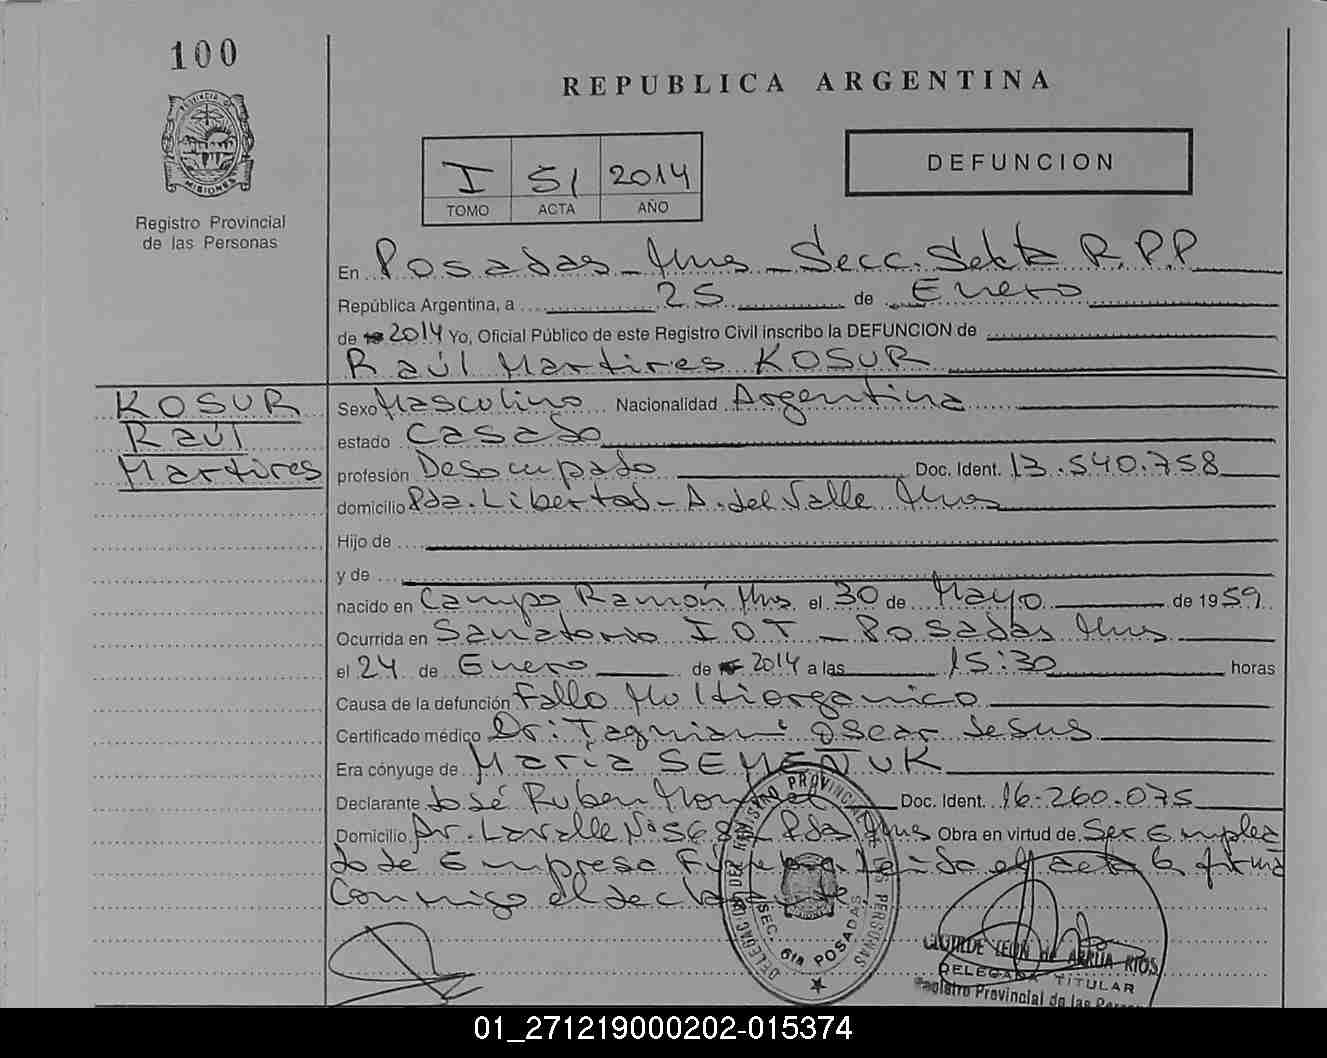 100
REPUBLICA ARGENTINA
PROVINCIA DE
MISIONES
Registro Provincial
de las Personas
I 51 2014
TOMO ACTA AÑO
DEFUNCION
En Posadas - Mnes - Secc. Sexta R.P.P
República Argentina, a 25 de Enero
de 2014 Yo, Oficial Público de este Registro Civil inscribo la DEFUNCION de
Raúl Martires KOSUR
KOSUR
Raúl
Martires
Sexo Masculino Nacionalidad Argentina
estado Casado
profesión Desocupado Doc. Ident. 13.540.758
domicilio Pda. Libertad - A. del Valle Mnes
Hijo de
y de
nacido en Campo Ramón Mnes el 30 de Mayo de 1959
Ocurrida en Sanatorio IOT - Posadas Mnes
el 24 de Enero de 2014 a las 15:30 horas
Causa de la defunción Fallo Multiorganico
Certificado médico Dr: Oscar Jesus
Era cónyuge de María SEMEÑUK
Declarante José Ruben Doc. Ident. 16.260.075
Domicilio Av. Lavalle Nº 568 - Pdas Mnes Obra en virtud de Ser Emplea
do de Empresa Leida el acta la firma
Conmigo el declarante
REGISTRO PROVINCIAL DE LAS PERSONAS
SEC. 6ta POSADAS
CLOTILDE LEON de ARRUA RIOS
DELEGADA TITULAR
Registro Provincial de las Personas
01_271219000202-015374